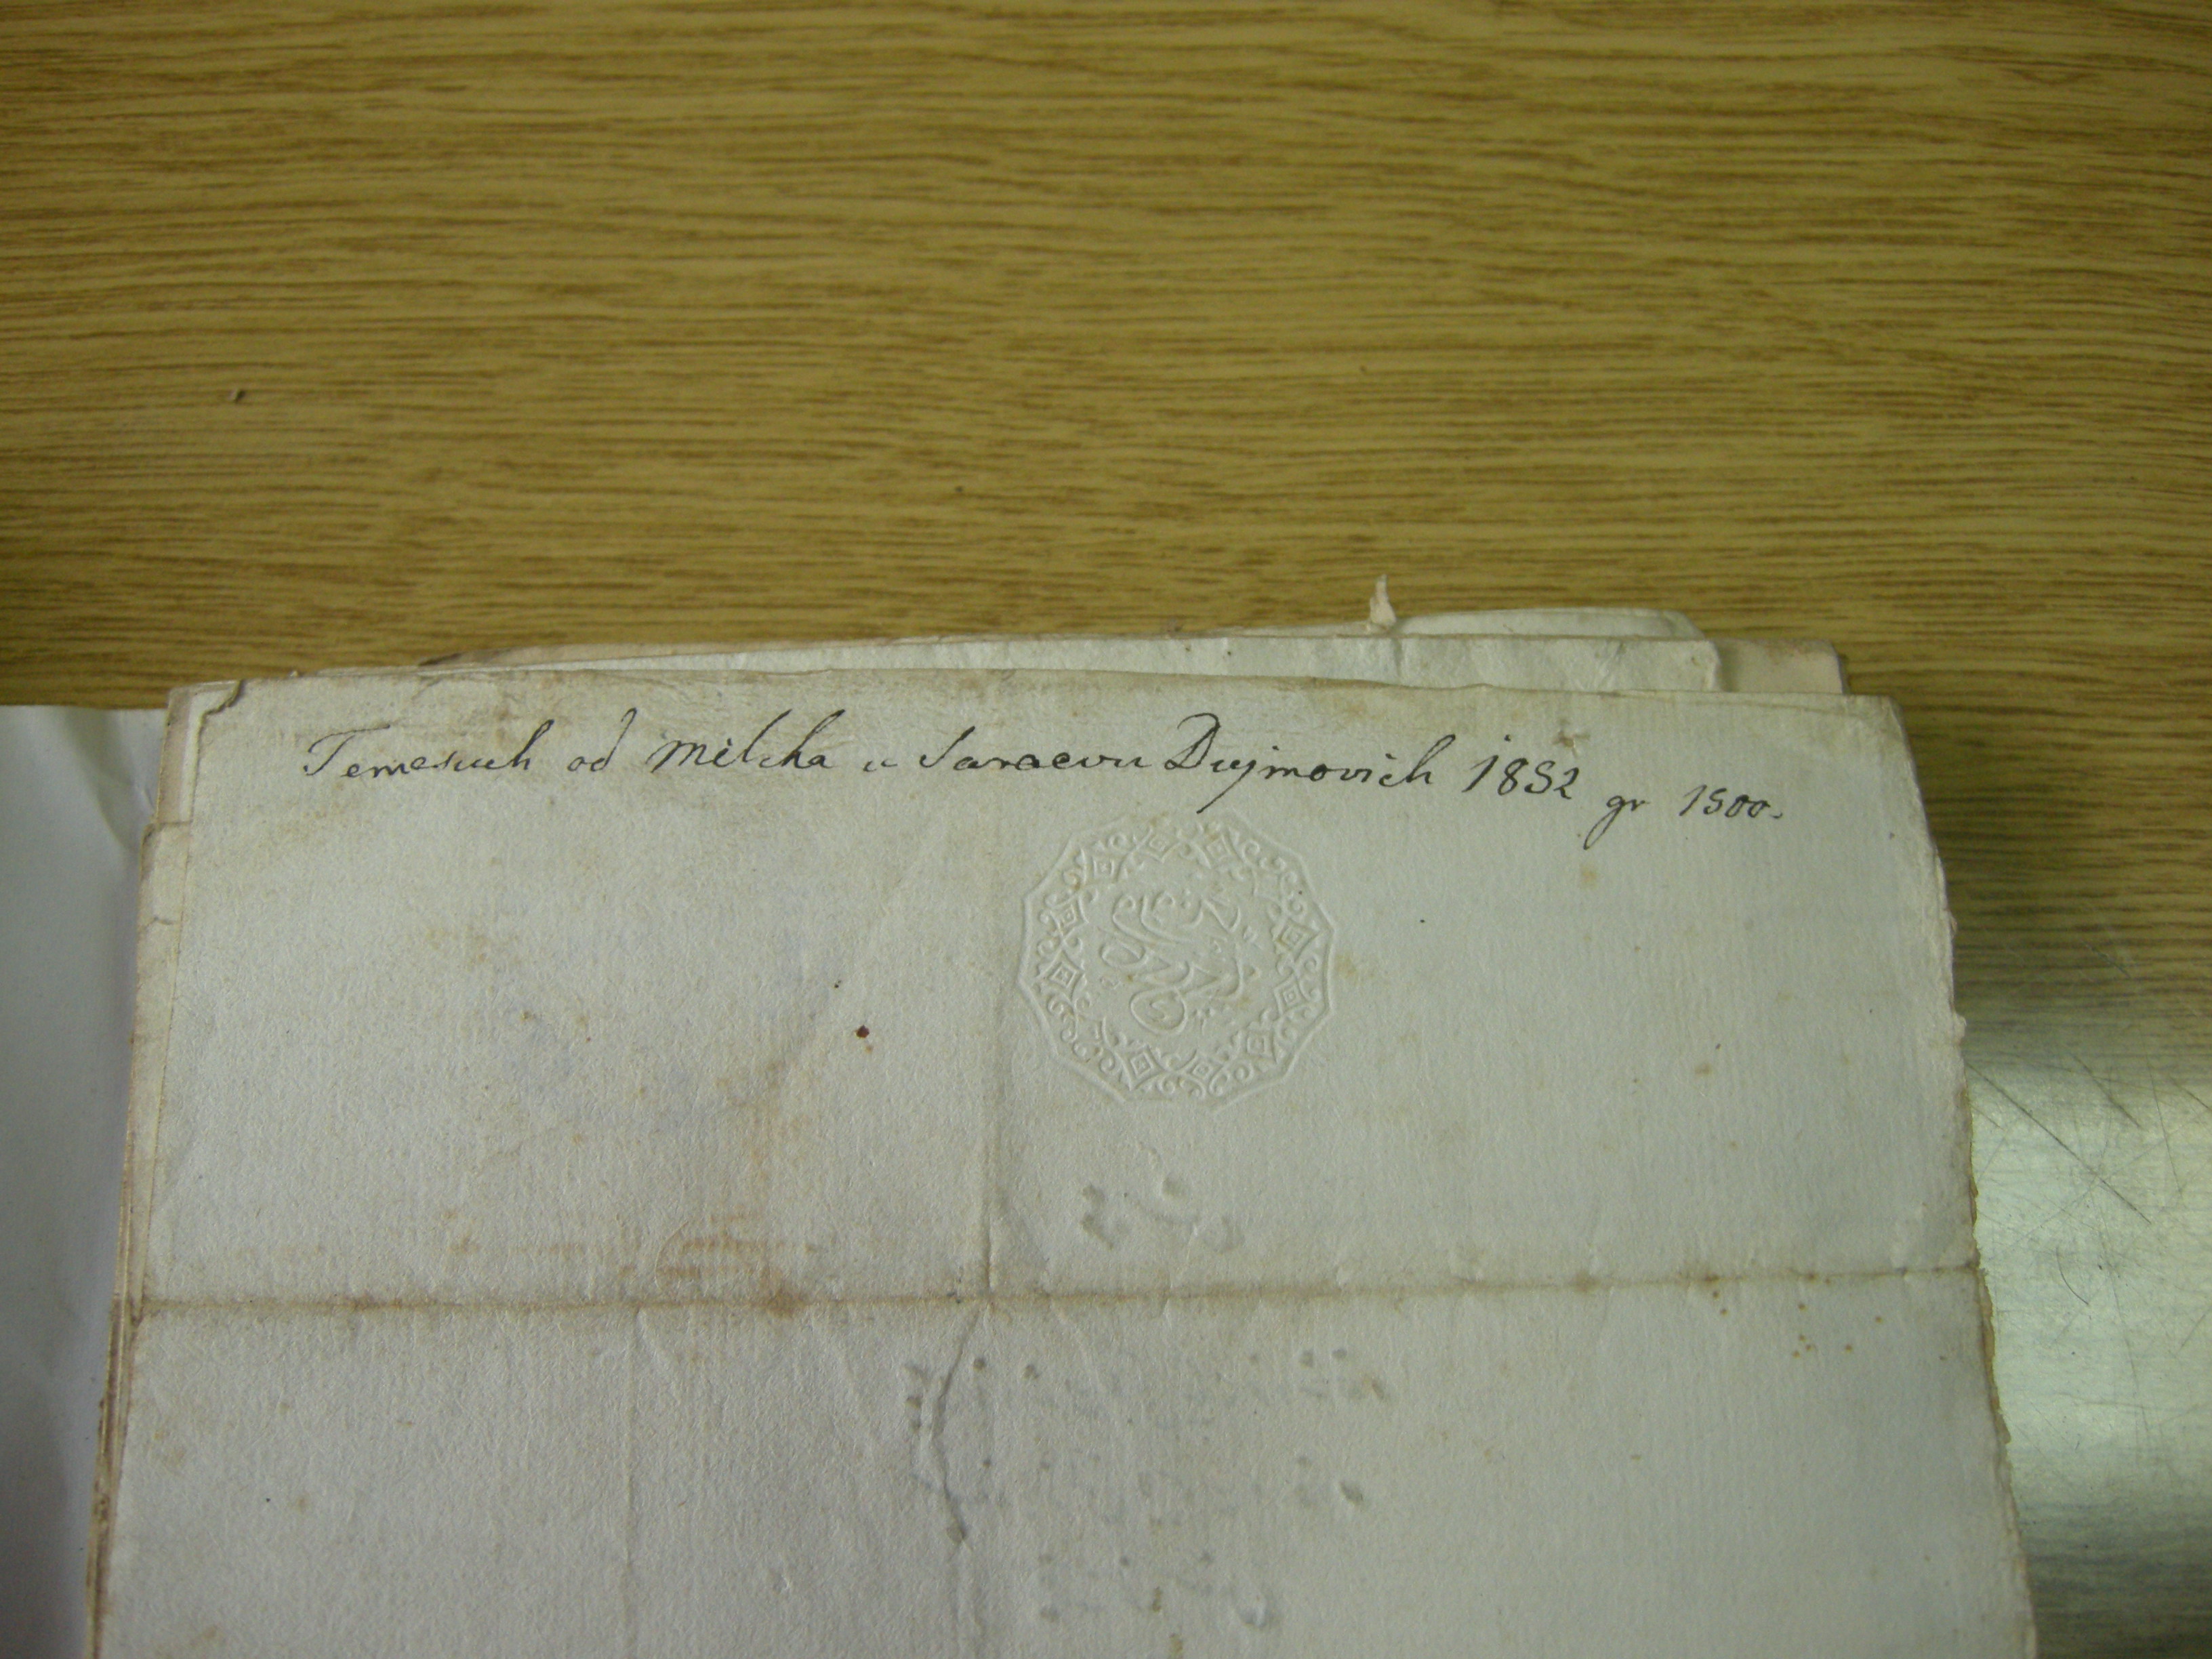 Temesuch od Milcha u Saraevu Dujmovich 1852 gr 1500.